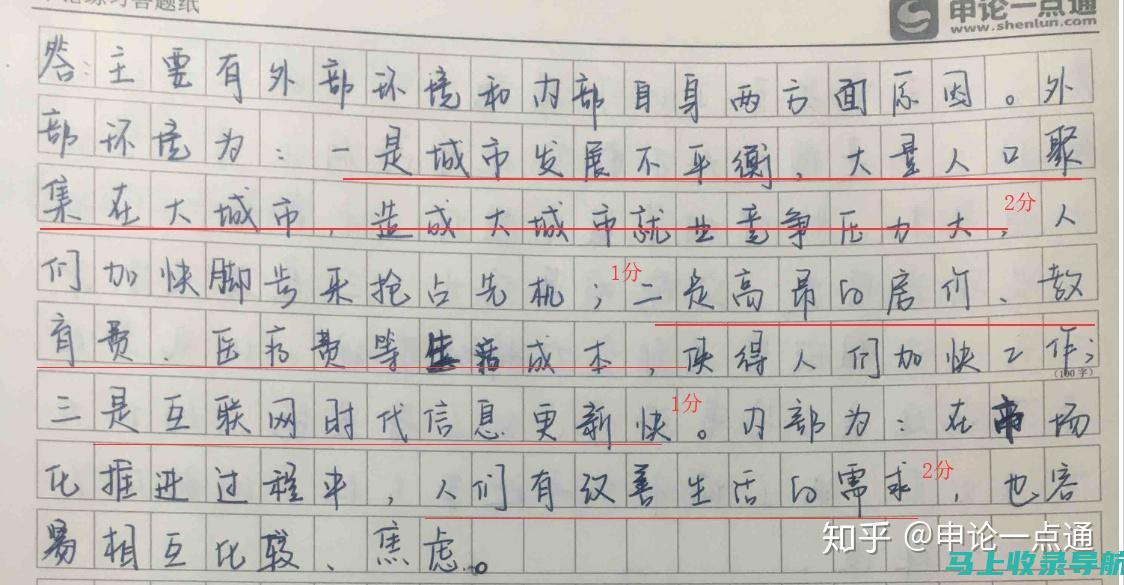 申论一点通
www.shenlun.com
答：主要有外部环境和内部自身两方面原因。外
部环境为：一是城市发展不平衡，大量人口聚
集在大城市，造成大城市就业竞争压力大，人
2分
们加快脚步来抢占先机；二是高昂的房价、教
1分
育费、医疗费等生活成本，使得人们加快工作；
(100字)
三是互联网时代信息更新快。内部为：在市场
1分
化推进过程中，人们有改善生活的需求，也容
2分
易相互比较、焦虑。
知乎 @申论一点通
马上收录导航